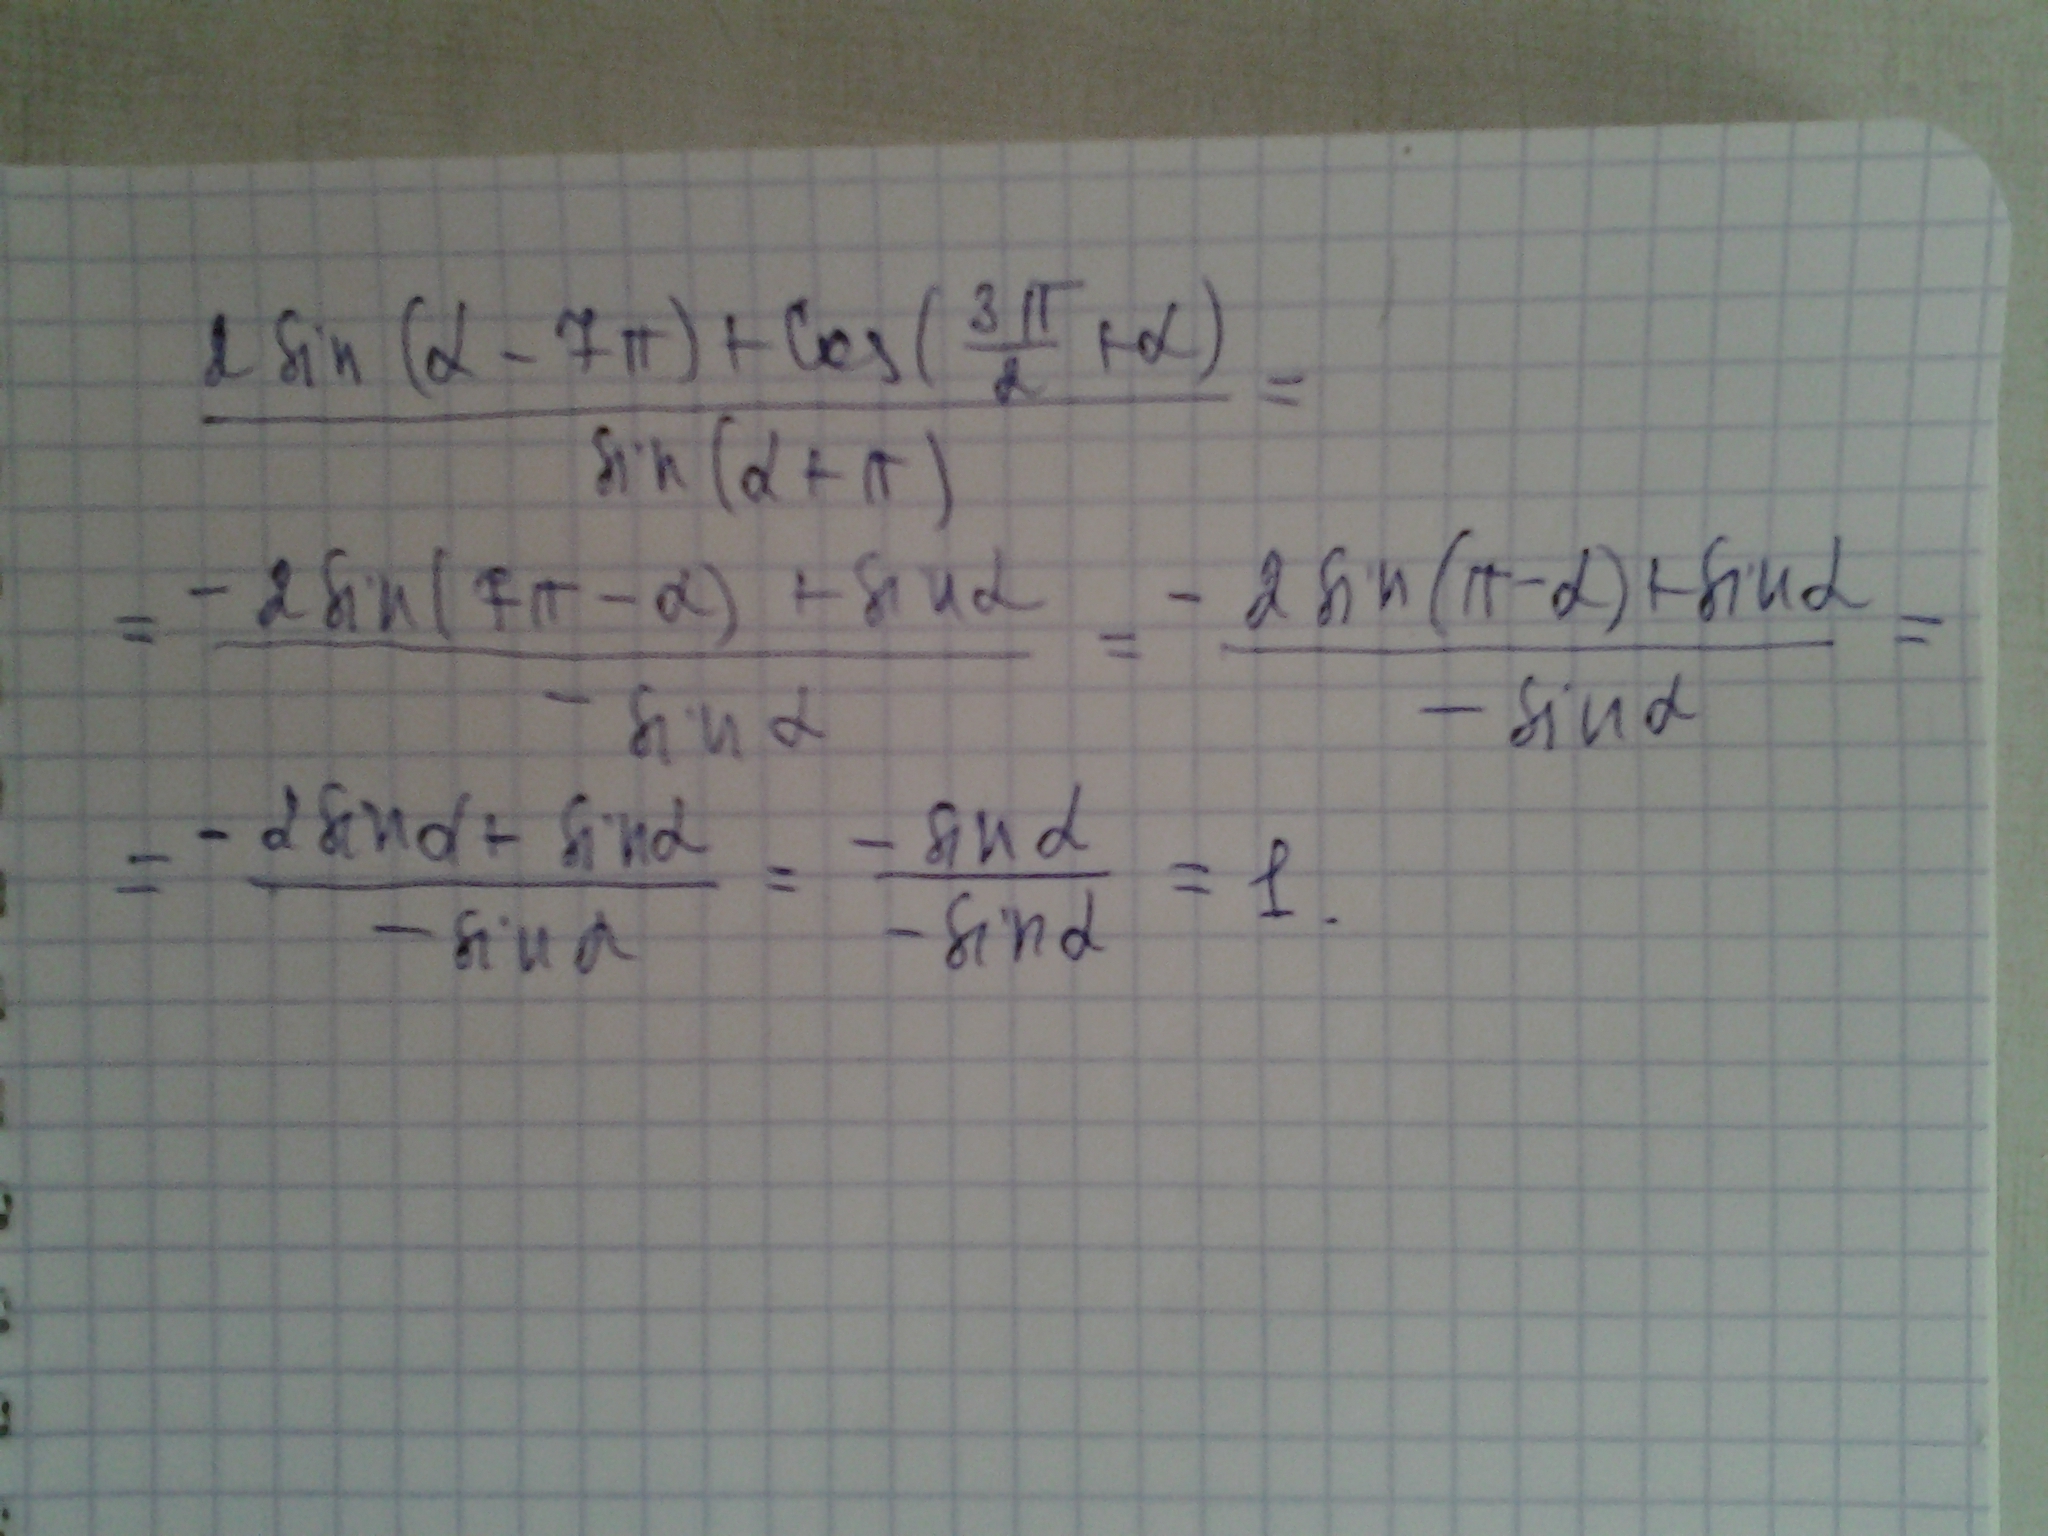 2 sin (α - 7π) + Cos ( 3π/2 + α) / sin (α + π) =
= - 2 sin ( 7π - α) + sin α / - sin α = - 2 sin (π - α) + sin α / - sin α =
= - 2 sin α + sin α / - sin α = - sin α / - sin α = 1.